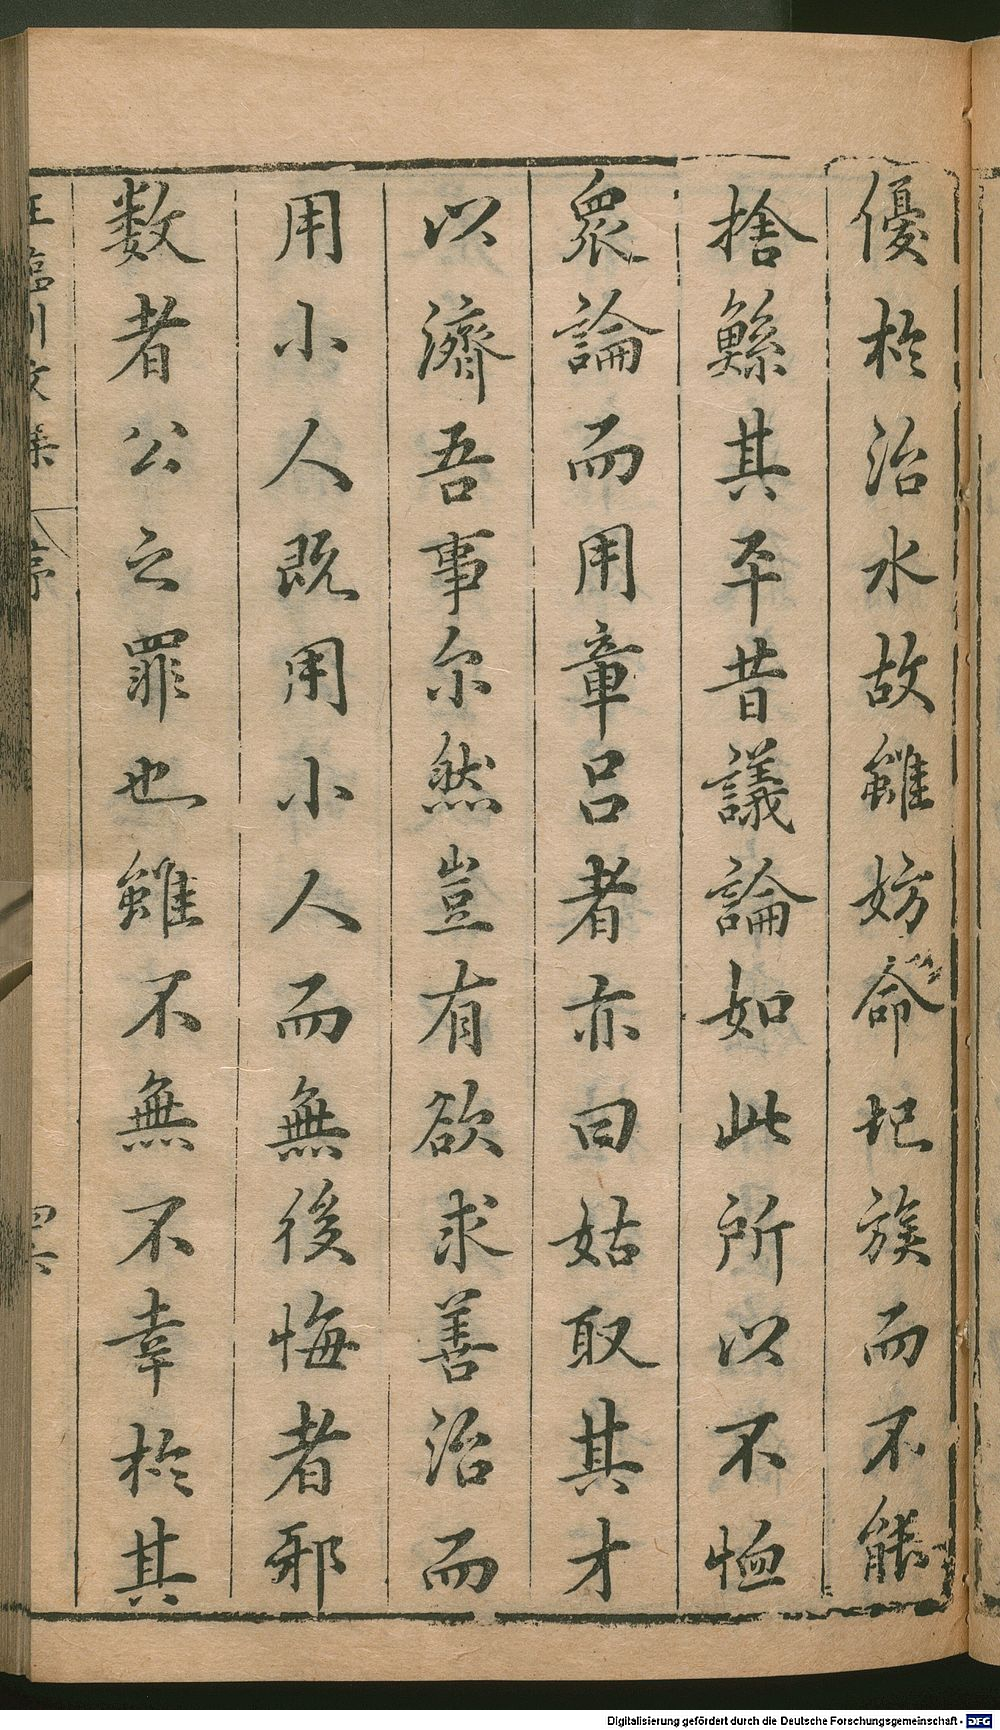 優於治水故雖妨命圮族而不能
捨鯀其平昔議論如此所以不恤
衆論而用章呂者亦曰姑取其才
以濟吾事尔然豈有欲求善治而
用小人既用小人而無後悔者邪
数者公之罪也雖不無不幸於其
王臨川文集 序 四六
Digitalisierung gefördert durch die Deutsche Forschungsgemeinschaft - DFG